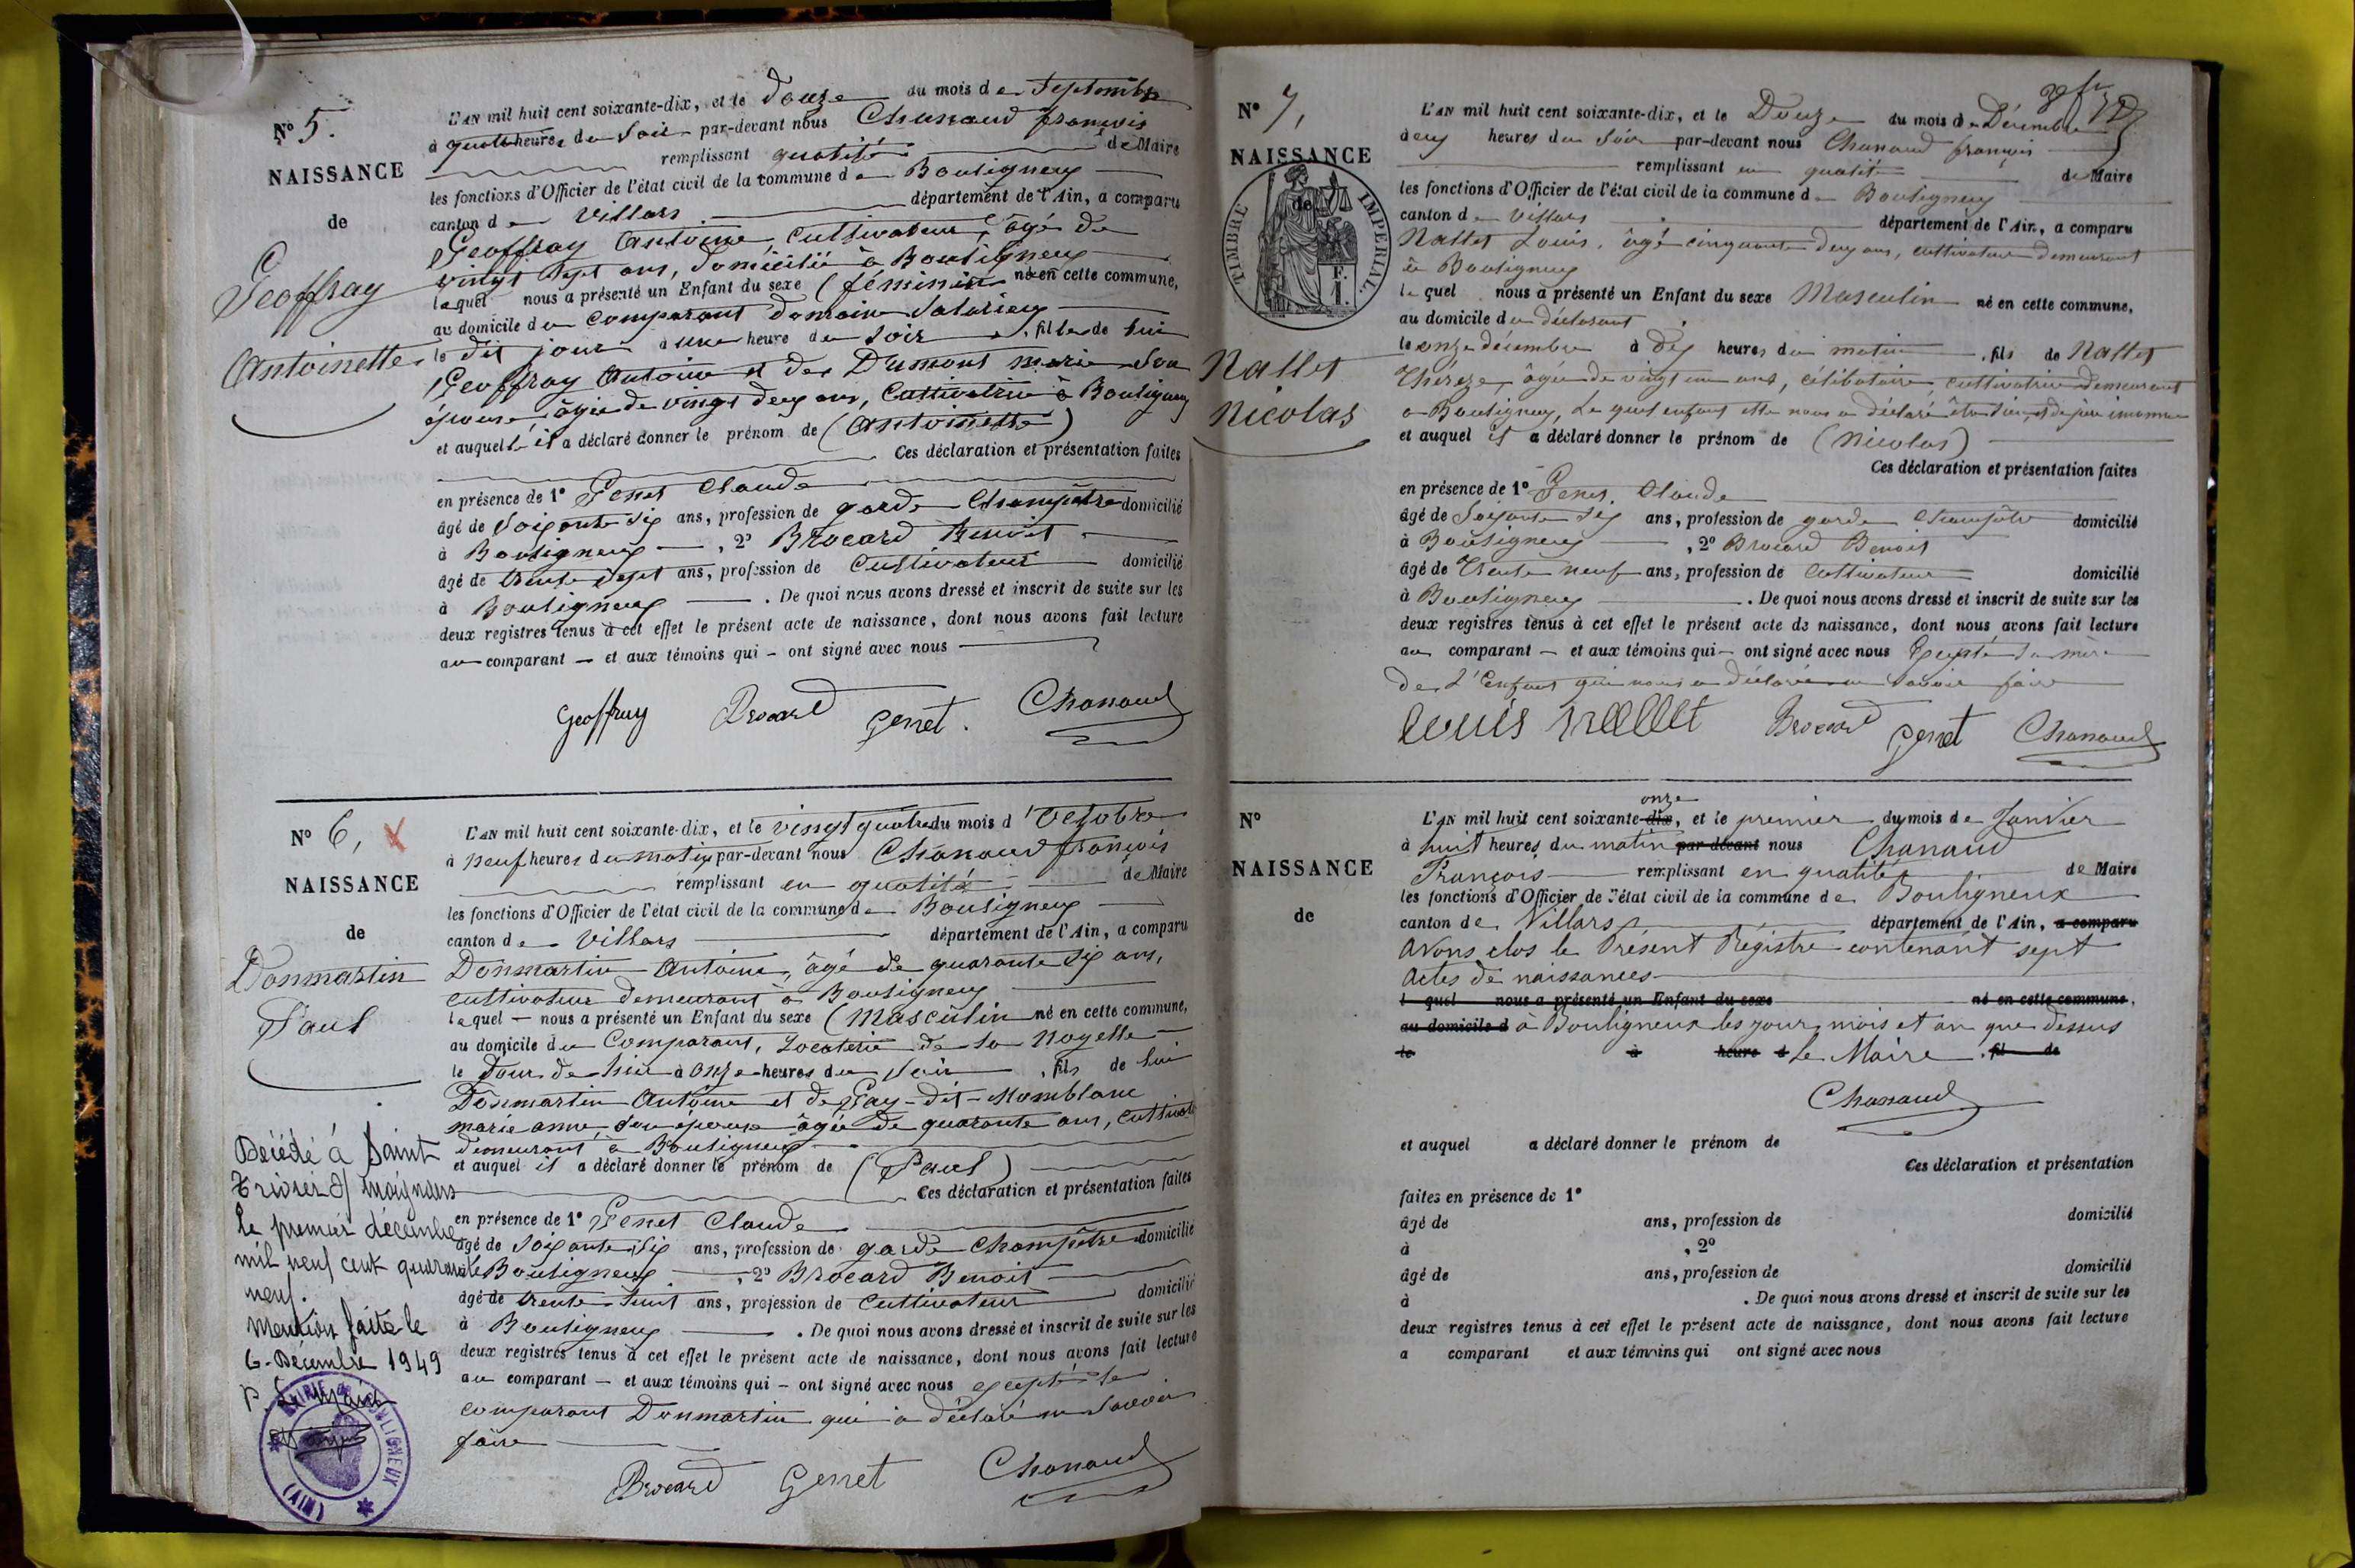 N° 5.
NAISSANCE
de
Geoffray
Antoinette
L'AN mil huit cent soixante-dix, et le Douze du mois de Septembre
à quatre heures du Soir par-devant nous Chanaud françois
remplissant qualité de Maire
les fonctions d'Officier de l'état civil de la commune de Bouligneux
canton de Villars département de l'Ain, a comparu
Geoffray Antoine, Cultivateur, âgé de
vingt Sept ans, Domicilié à Bouligneux
lequel nous a présenté un Enfant du sexe (féminin né en cette commune,
au domicile du Comparant Domaine
le dit jour à une heure du soir, fille de lui
Geoffray Antoine et de Dumont marie Son
épouse, âgée de vingt deux ans, Cultivatrice à Bouligneux
et auquelle il a déclaré donner le prénom de (Antoinette)
Ces déclaration et présentation faites
en présence de 1° Genet Claude
âgé de Soixante Six ans, profession de garde Champêtre domicilié
à Bouligneux, 2° Brocard Benoit
âgé de trente Sept ans, profession de Cultivateur domicilié
à Bouligneux. De quoi nous avons dressé et inscrit de suite sur les
deux registres tenus à cet effet le présent acte de naissance, dont nous avons fait lecture
au comparant — et aux témoins qui — ont signé avec nous
Geoffray Brocard Genet. Chanaud
N° 6, X
NAISSANCE
de
Donmartin
Paul
L'AN mil huit cent soixante-dix, et le vingt quatre du mois d'Octobre
à neuf heures du matin par-devant nous Chanaud françois
remplissant en qualité de Maire
les fonctions d'Officier de l'état civil de la commune de Bouligneux
canton de Villars département de l'Ain, a comparu
Donmartin Antoine, âgé de quarante Six ans,
Cultivateur demeurant à Bouligneux
lequel — nous a présenté un Enfant du sexe (Masculin né en cette commune,
au domicile du Comparant, Locaterie de la Noyelle
le Jour de hier à onze heures du Soir, fils de lui
Donmartin Antoine et de Gay-dit-Momblanc
marie anne, Son épouse âgée de quarante ans, Cultivat
demeurant à Bouligneux
et auquel il a déclaré donner le prénom de (Paul)
Ces déclaration et présentation faites
en présence de 1° Genet Claude
âgé de Soixante Six ans, profession de garde Champêtre domicilié
à Bouligneux, 2° Brocard Benoit
âgé de trente huit ans, profession de Cultivateur domicilié
à Bouligneux. De quoi nous avons dressé et inscrit de suite sur les
deux registres tenus à cet effet le présent acte de naissance, dont nous avons fait lecture
au comparant — et aux témoins qui — ont signé avec nous excepté le
comparant Donmartin qui a déclaré ne Savoir
faire
Brocard Genet Chanaud
Décédé à Saint
Trivier s/ moignans
le premier décembre
mil neuf cent quarante
neuf.
Mention faite le
6 - Décembre 1949
P. Le Maire
MAIRIE de BOULIGNEUX
(AIN)
N° 7,
NAISSANCE
de
TIMBRE IMPERIAL
Nallet
Nicolas
L'AN mil huit cent soixante-dix, et le Douze du mois de Décembre
à deux heures du Soir par-devant nous Chanaud françois
remplissant en qualité de Maire
les fonctions d'Officier de l'état civil de la commune de Bouligneux
canton de Villars département de l'Ain, a comparu
Nallet Louis, âgé cinquante deux ans, cultivateur demeurant
à Bouligneux
lequel nous a présenté un Enfant du sexe Masculin né en cette commune,
au domicile du déclarant
le onze décembre à dix heures du matin, fils de Nallet
Thérèze, âgée de vingt un ans, célibataire, cultivatrice demeurant
à Bouligneux, Le quel enfant elle nous a déclaré être Sien, et de père inconnu
et auquel il a déclaré donner le prénom de (Nicolas)
Ces déclaration et présentation faites
en présence de 1° Genet, Claude
âgé de Soixante Six ans, profession de garde Champêtre domicilié
à Bouligneux, 2° Brocard Benoit
âgé de Trente neuf ans, profession de Cultivateur domicilié
à Bouligneux. De quoi nous avons dressé et inscrit de suite sur les
deux registres tenus à cet effet le présent acte de naissance, dont nous avons fait lecture
au comparant — et aux témoins qui — ont signé avec nous Excepté la mère
de L'Enfant qui nous a déclaré ne Savoir faire
Louis Nallet Brocard Genet Chanaud
N°
NAISSANCE
de
onze
L'AN mil huit cent soixante-dix, et le premier du mois de Janvier
à huit heures du matin par-devant nous Chanaud
François remplissant en qualité de Maire
les fonctions d'Officier de l'état civil de la commune de Bouligneux
canton de Villars département de l'Ain, a comparu
Avons clos le Présent Régistre contenant sept
Actes de naissances
l quel nous a présenté un Enfant du sexe né en cette commune,
au domicile d à Bouligneux les jour, mois et an que dessus
le à heure d Le Maire. fil de
Chanaud
et auquel a déclaré donner le prénom de
Ces déclaration et présentation
faites en présence de 1°
âgé de ans, profession de domicilié
à , 2°
âgé de ans, profession de domicilié
à . De quoi nous avons dressé et inscrit de suite sur les
deux registres tenus à cet effet le présent acte de naissance, dont nous avons fait lecture
a comparant et aux témoins qui ont signé avec nous